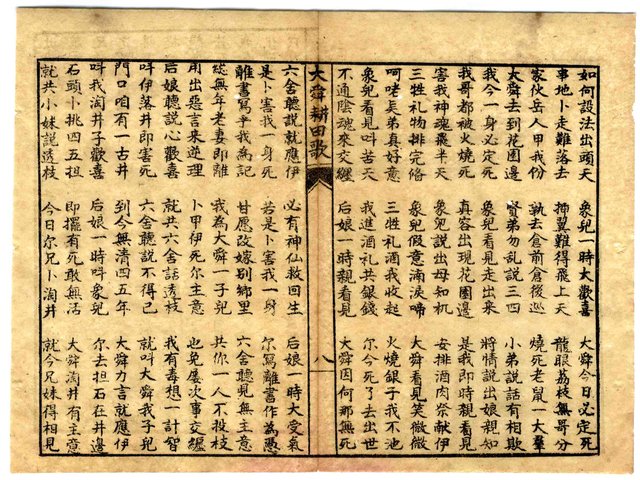 如何設法出頭天　象兒一時大歡喜　大舜今日必定死
事地卜走難落去　插翼難得飛上天　龍眼荔枝無哥分
家伙岳人甲我份　執去倉前倉後巡　燒死老鼠一大羣
大舜去到花園邊　賢弟勿乱説三四　小弟說話有相欺
我今一身必定死　象兒看見走出來　將情說出娘親知
我哥都被火燒死　真容出現花園邊　是我即時親看見
害我神魂飛半天　象兒說出母知机　安排酒肉祭献伊
三牲礼物排完俻　象兒假意淌淚啼　大舜看見笑微微
呵咾長弟真好意　三牲礼酒我收起　火燒銀子我不池
象兒看見叫苦天　我進酒礼共銀錢　尔今死了去出世
不通陰魂來交纏　后娘一時親看見　大舜因何那無死
大舜耕田歌　八
六舍聽說就應伊　必有神仙救回生　后娘一時大受氣
是卜害我一身死　若是卜害我一身　尔寫離書作為憑
離書寫乎我為記　甘愿改嫁別鄉里　六舍聽見無主意
縂無年老妻即離　我為大舜一子兒　共你一人不投枝
用出惡言來逆理　卜甲伊死尔主意　也免屢次事交纏
后娘聽說心歡喜　就共六舍話透枝　我有毒想一計智
叫伊落井即害死　六舍聽說不得已　就叫大舜我子兒
門口咱有一古井　到今無清四五年　大舜力言就應伊
叫我淘井子歡喜　后娘一時叫象兒　尔去担石在井邊
石頭卜挑四五担　即擺有死敢無活　大舜淘井有主意
就共小妹說透枝　今日尔兄卜淘井　就今兄妹得相見